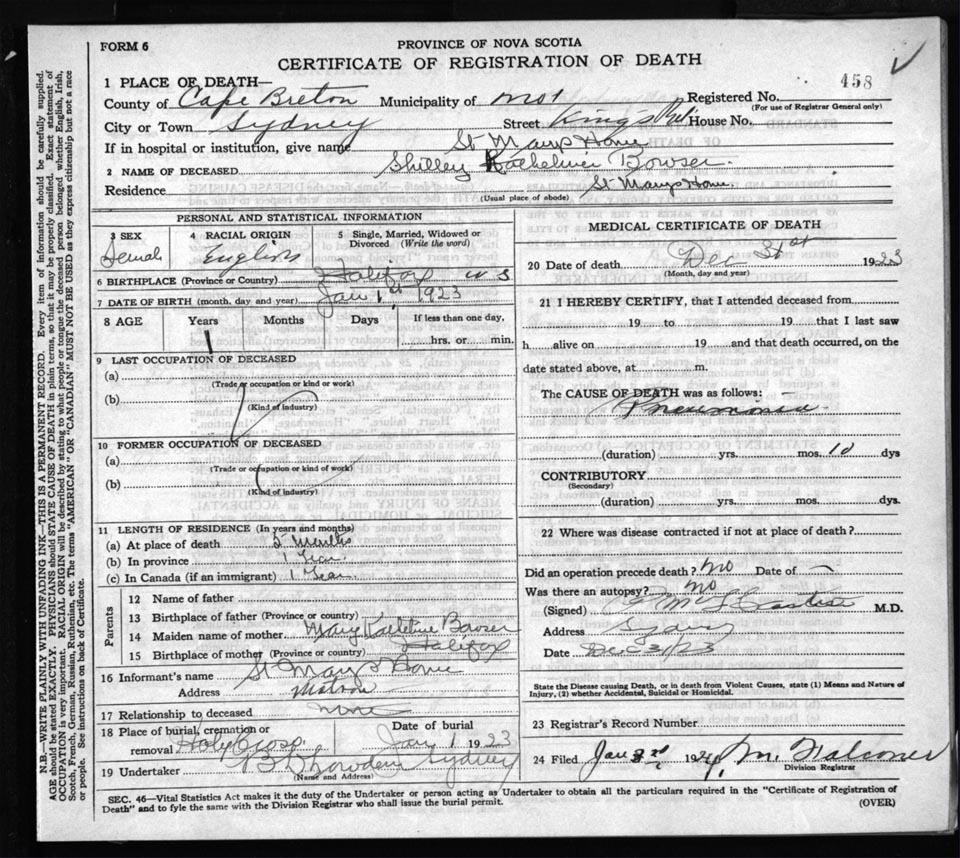 FORM 6
PROVINCE OF NOVA SCOTIA
CERTIFICATE OF REGISTRATION OF DEATH
458
1 PLACE OF DEATH—
County of Cape Breton Municipality of Registered No.
(For use of Registrar General only)
City or Town Sydney Street Kings Rd. House No.
If in hospital or institution, give name St Marys Home
2 NAME OF DECEASED Shilley Bowser
Residence St Marys Home.
(Usual place of abode)
PERSONAL AND STATISTICAL INFORMATION
3 SEX 4 RACIAL ORIGIN 5 Single, Married, Widowed or Divorced (Write the word)
Female English
6 BIRTHPLACE (Province or Country) Halifax N S
7 DATE OF BIRTH (month, day and year) Jan 1st 1923
8 AGE Years Months Days If less than one day,
1 hrs. or min.
9 LAST OCCUPATION OF DECEASED
(a)
(Trade or occupation or kind or work)
(b)
(Kind of industry)
10 FORMER OCCUPATION OF DECEASED
(a)
(Trade or occupation or kind of work)
(b)
(Kind of industry)
11 LENGTH OF RESIDENCE (In years and months)
(a) At place of death Months
(b) In province 1 Year.
(c) In Canada (if an immigrant) 1 Year.
Parents
12 Name of father
13 Birthplace of father (Province or country)
14 Maiden name of mother Mary Bowser
15 Birthplace of mother (Province or country) Halifax
16 Informant's name St Mary's Home
Address Matron
17 Relationship to deceased none
18 Place of burial, cremation or removal Holy Cross Date of burial Jan 1 1923
19 Undertaker Sydney
(Name and Address)
MEDICAL CERTIFICATE OF DEATH
20 Date of death Dec 31st 1923
(Month, day and year)
21 I HEREBY CERTIFY, that I attended deceased from
19 to 19 that I last saw
h alive on 19 and that death occurred, on the
date stated above, at m.
The CAUSE OF DEATH was as follows:
Pneumonia
(duration) yrs. mos. 10 dys
CONTRIBUTORY
(Secondary)
(duration) yrs. mos. dys.
22 Where was disease contracted if not at place of death?
Did an operation precede death? No Date of —
Was there an autopsy? No
(Signed) M.D.
Address Sydney
Date Dec 31/23
State the Disease causing Death, or in death from Violent Causes, state (1) Means and Nature of
Injury, (2) whether Accidental, Suicidal or Homicidal.
23 Registrar's Record Number
24 Filed Jan 1924
Division Registrar
SEC. 46—Vital Statistics Act makes it the duty of the Undertaker or person acting as Undertaker to obtain all the particulars required in the "Certificate of Registration of
Death" and to fyle the same with the Division Registrar who shall issue the burial permit.
(OVER)
N.B.—WRITE PLAINLY WITH UNFADING INK—THIS IS A PERMANENT RECORD. Every item of information should be carefully supplied.
AGE should be stated EXACTLY. PHYSICIANS should STATE CAUSE OF DEATH in plain terms, so that it may be properly classified. Exact statement of
OCCUPATION is very important. RACIAL ORIGIN will be described by stating to what people or tongue the deceased person belonged whether English, Irish,
Scotch, French, German, Russian, Ruthenian, etc. The terms "AMERICAN" OR "CANADIAN" MUST NOT BE USED as they express citizenship but not a race
or people. See instructions on back of Certificate.